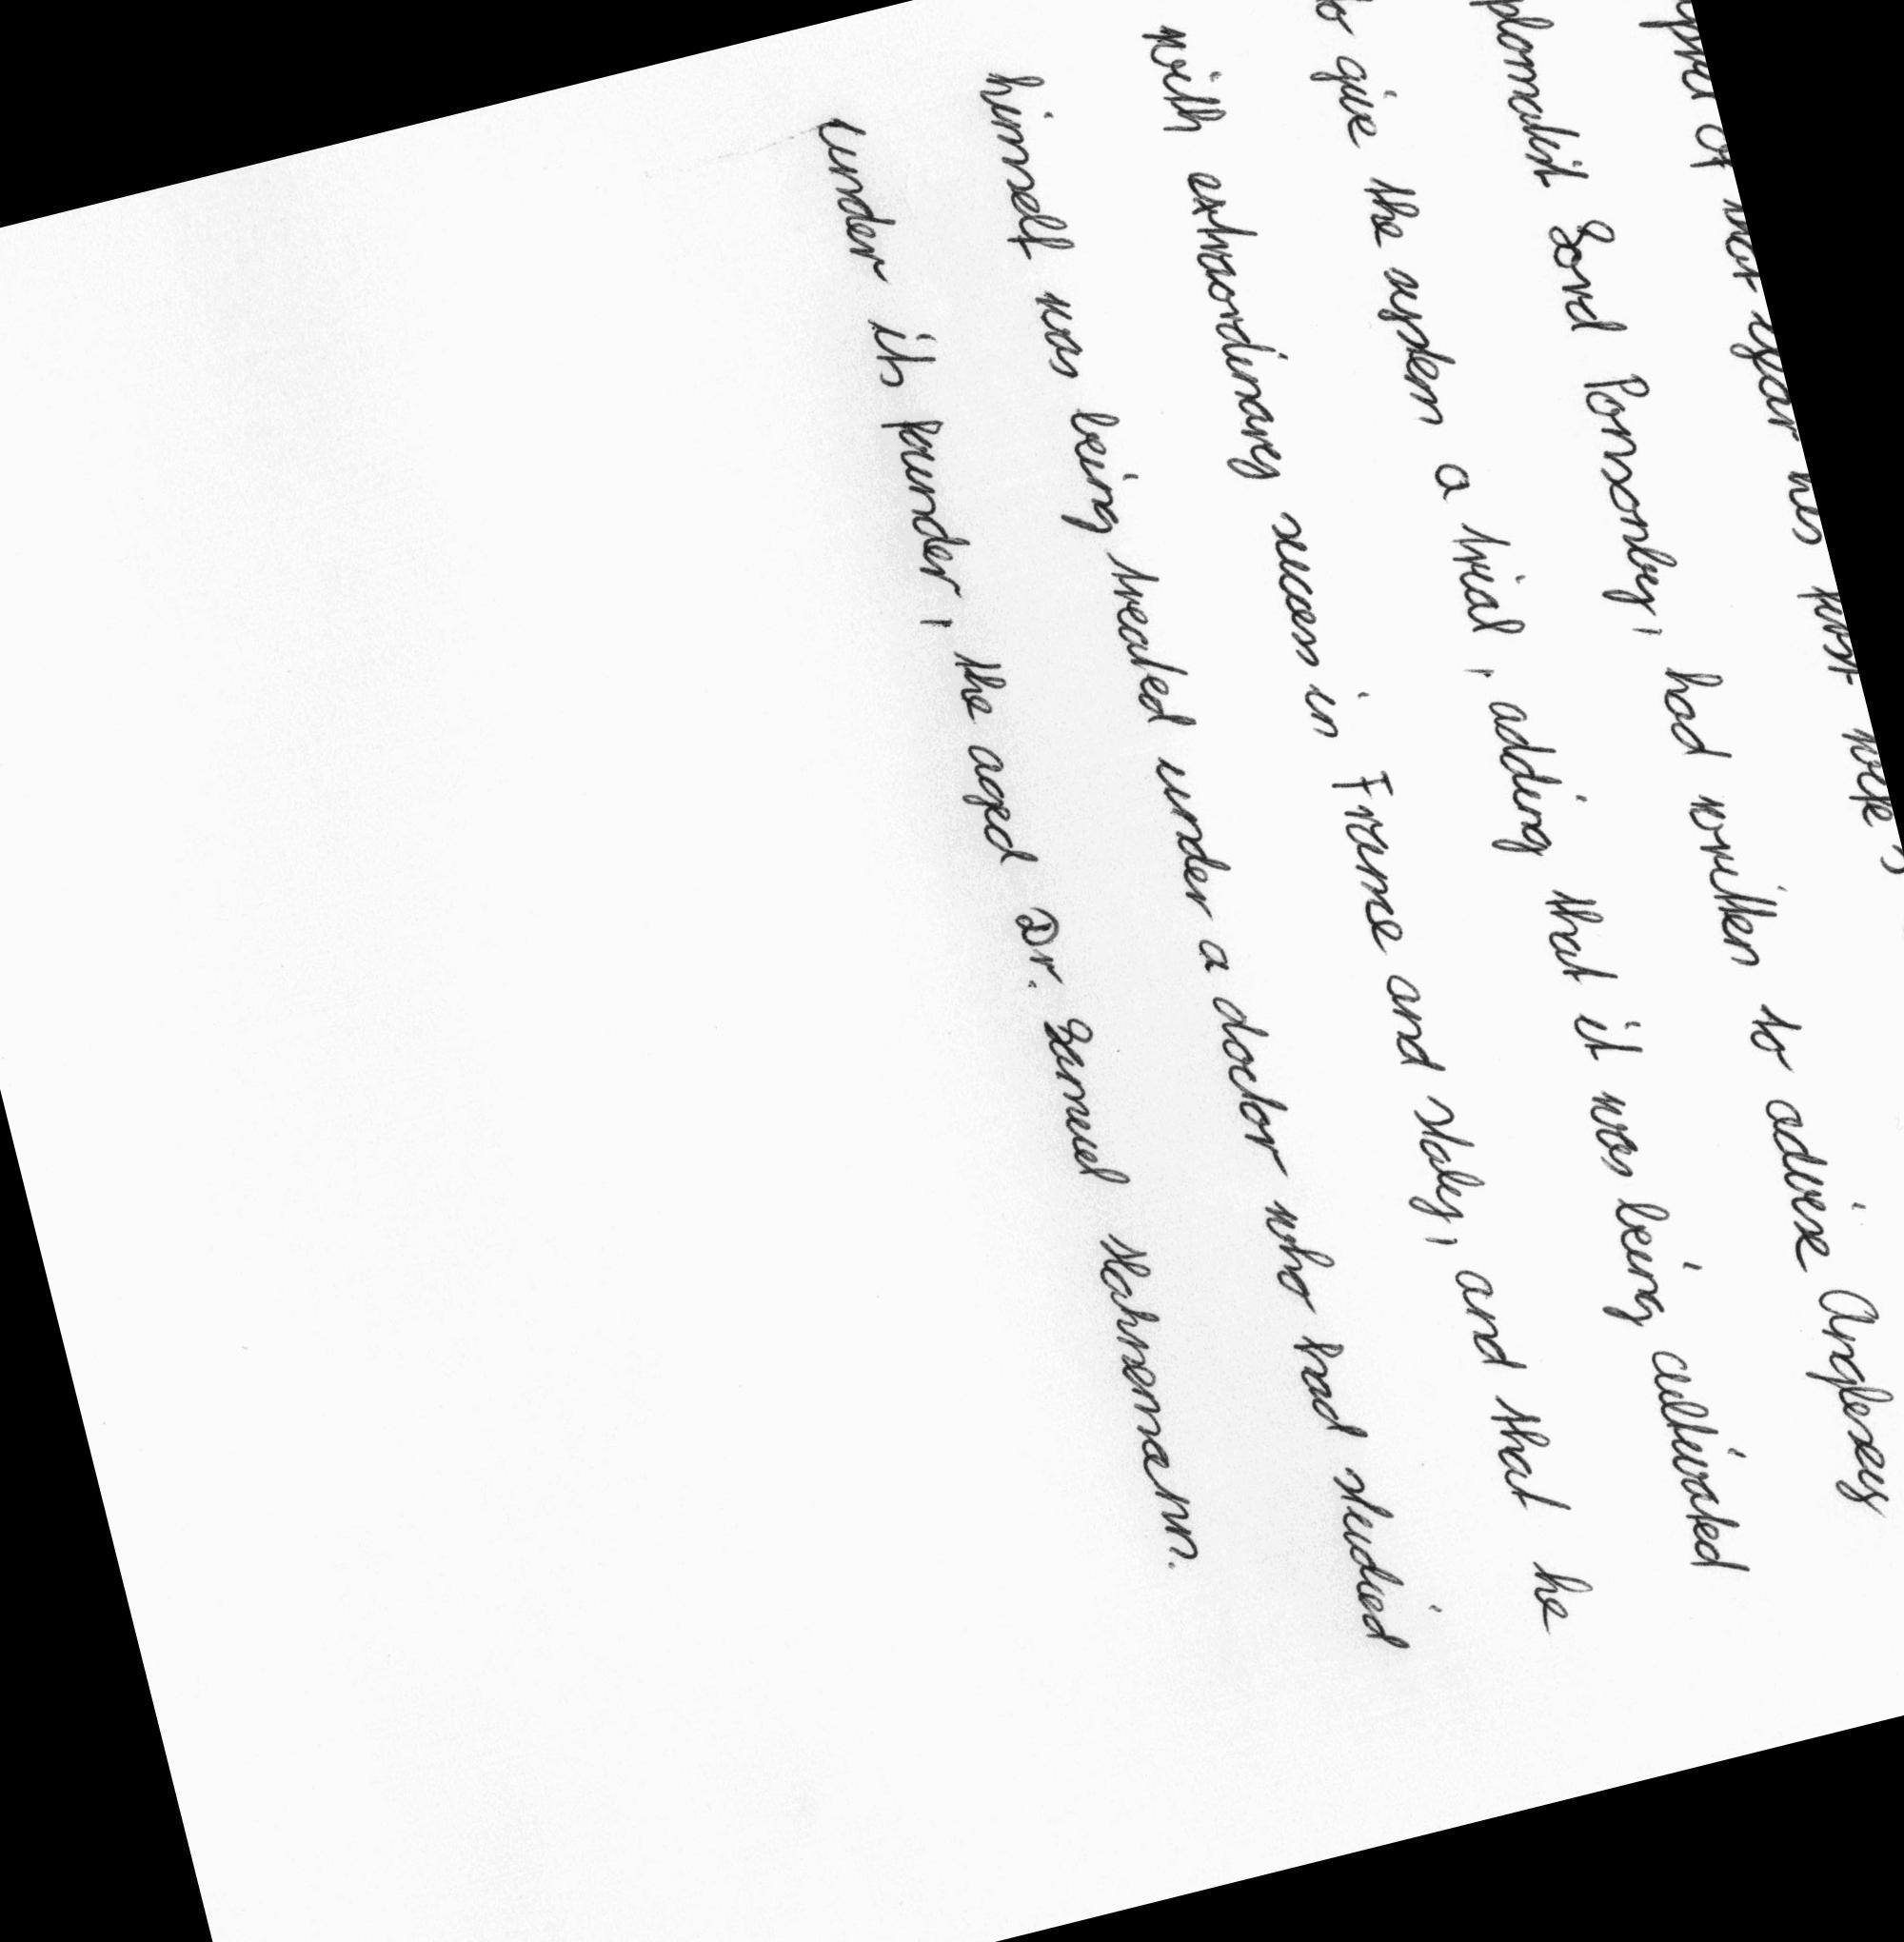 of that year his first wife's
Lord Ponsonby, had written to advise Anglesey
give the system a trial, adding that it was being cultivated
with extraordinary success in France and Italy, and that he
himself was being treated under a doctor who had studied
under its founder, the aged Dr. Samuel Hahnemann.